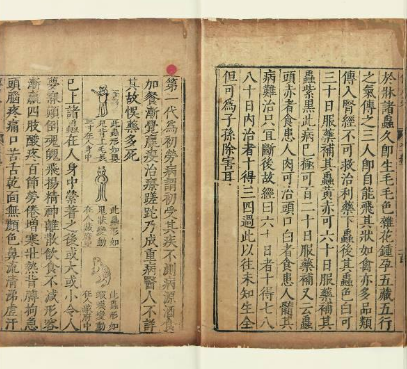 於牀諸蟲久即生毛毛色雜花鍾孕五藏五行
之氣傳之三人即自能飛其狀如禽亦多品類
傳入腎經不可救治利藥下蟲後其蟲色白可
三十日服藥補其蟲黃赤可六十日服藥補其
蟲紫黑此病已極可百二十日服藥補又云蟲
頭赤者食患人肉可治頭口白者食患人髓其
病難治只宜斷後故經曰六十日者十得七八
八十日內治者十得三四過此以往未知生全
但可為子孫除害耳
第一代為初勞病謂初受其疾不測病源酒食
加餐漸覺羸疾治療蹉跎乃成重病醫人不詳
其故悞藥多死
此蟲形如
此蟲形如
此蟲形如
已上諸蟲在人身中蒙著之後或大或小令人
夢寐顛倒魂魄飛揚精神離散飲食不減形容
漸羸四肢酸疼百節勞倦增寒壯熱背膊拘急
頭腦疼痛口苦舌乾面無顏色鼻流清涕虛汗